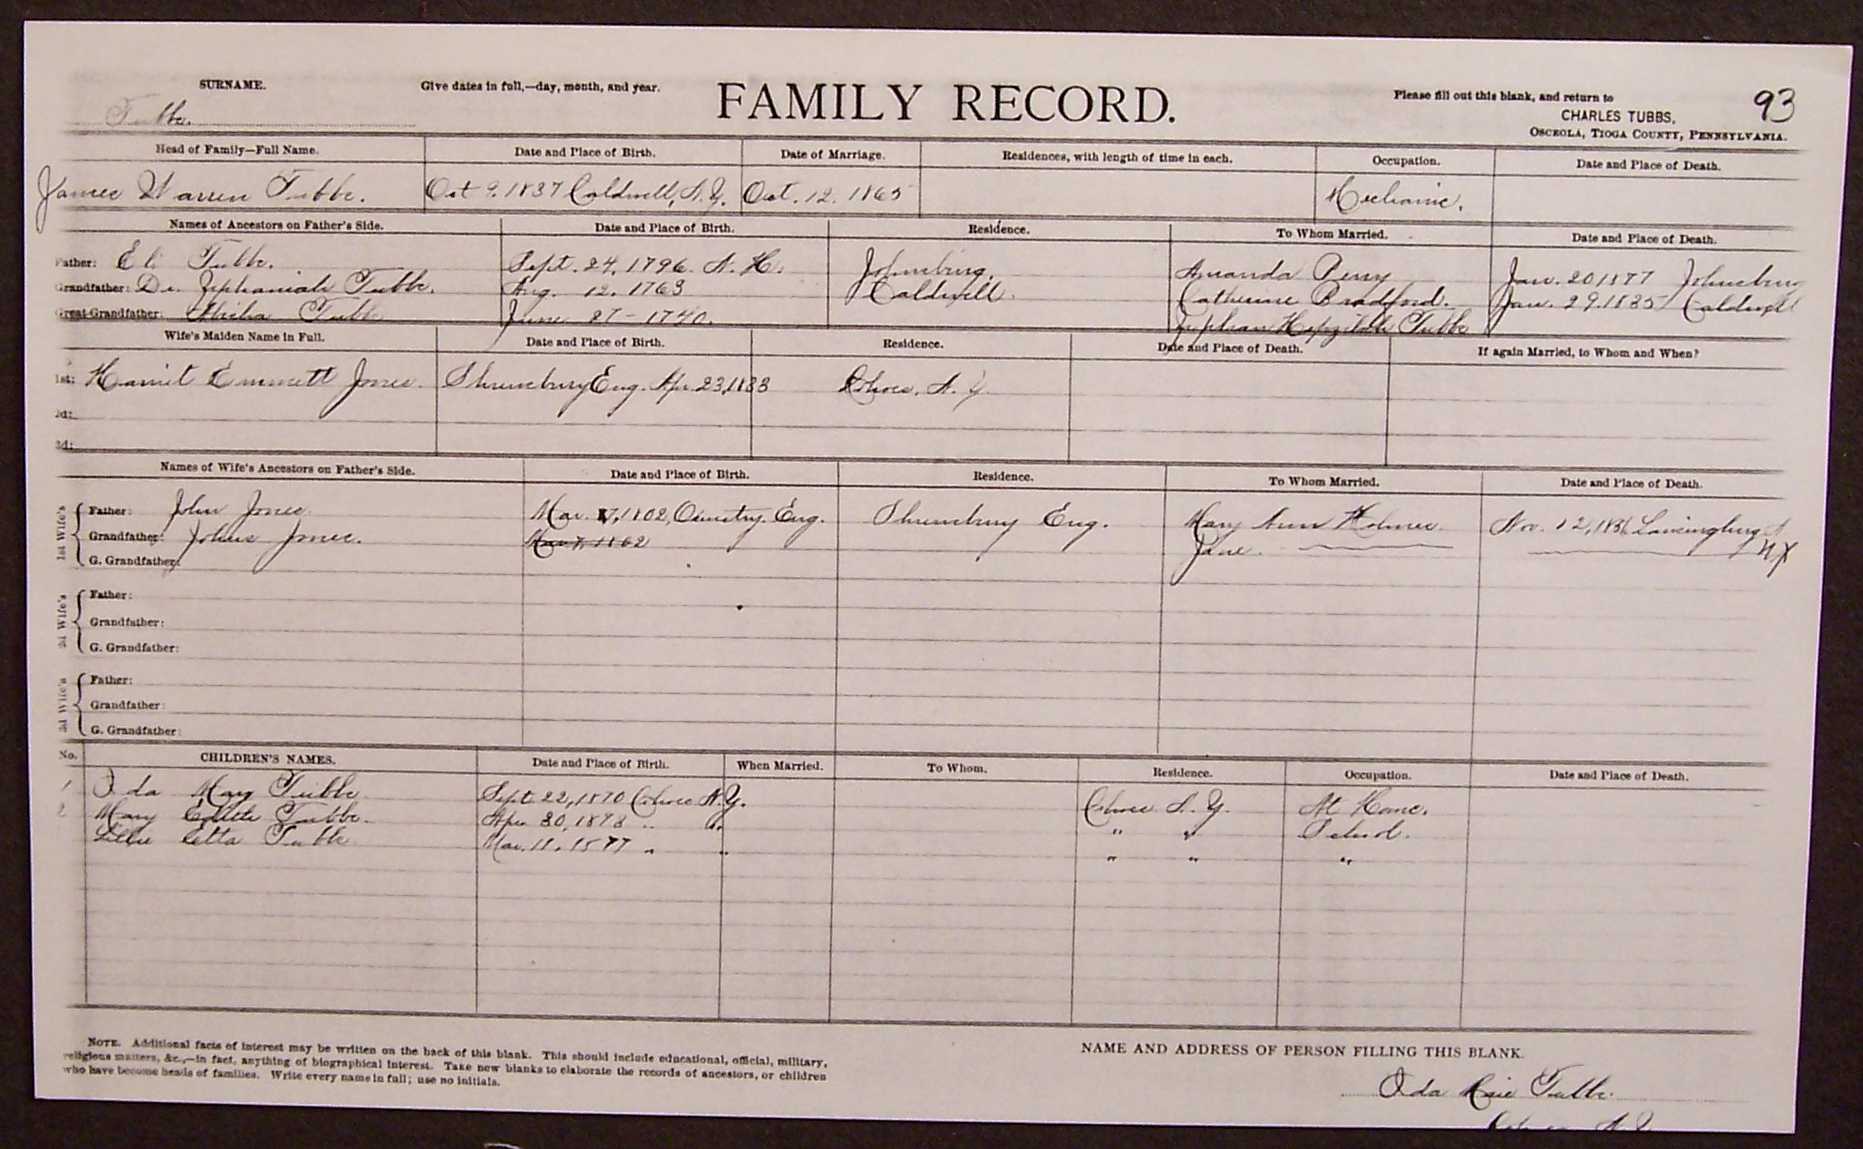 SURNAME.
Give dates in full,—day, month, and year.
FAMILY RECORD.
Please fill out this blank, and return to
93
CHARLES TUBBS,
OSCEOLA, TIOGA COUNTY, PENNSYLVANIA.
Tubbs.
Head of Family—Full Name. Date and Place of Birth. Date of Marriage. Residences, with length of time in each. Occupation. Date and Place of Death.
James Warren Tubbs. Oct 9, 1837 Caldwell, N.Y. Oct. 12, 1865 Mechanic.
Names of Ancestors on Father's Side. Date and Place of Birth. Residence. To Whom Married. Date and Place of Death.
Father: Eli Tubbs. Sept. 24, 1796. N. H. Johnsburg. Amanda Perry Jan. 20 1877 Johnsburg
Grandfather: Dr. Zephaniah Tubbs. Aug. 12, 1763 Caldwell. Catherine Bradford. Jan. 29, 1835 Caldwell
Great-Grandfather: Tubbs June 27 - 1740. Hepzibah Tubbs
Wife's Maiden Name in Full. Date and Place of Birth. Residence. Date and Place of Death. If again Married, to Whom and When?
1st: Harriet Emmett Jones. Shrewsbury Eng. Apr. 23, 1838 Cohoes, N.Y.
2d:
3d:
Names of Wife's Ancestors on Father's Side. Date and Place of Birth. Residence. To Whom Married. Date and Place of Death.
1st Wife's
Father: John Jones. Mar. 7, 1802, Eng. Shrewsbury Eng. Mary Ann Holmes. Nov. 12, Lansingburg N.Y
Grandfather: Jones. Mar 7, 1802 Jane.
G. Grandfather:
2d Wife's
Father:
Grandfather:
G. Grandfather:
3d Wife's
Father:
Grandfather:
G. Grandfather:
No. CHILDREN'S NAMES. Date and Place of Birth. When Married. To Whom. Residence. Occupation. Date and Place of Death.
1 Ida May Tubbs Sept. 22, 1870 Cohoes N.Y. Cohoes N.Y. At Home.
2 Mary Tubbs. Apr. 30, 1873 " " " " School.
Etta Tubbs Mar. 11, 1877 " " " " "
NOTE. Additional facts of interest may be written on the back of this blank. This should include educational, official, military,
religious matters, &c.,—in fact, anything of biographical interest. Take new blanks to elaborate the records of ancestors, or children
who have become heads of families. Write every name in full; use no initials.
NAME AND ADDRESS OF PERSON FILLING THIS BLANK.
Ida Tubbs.
Cohoes N.Y.